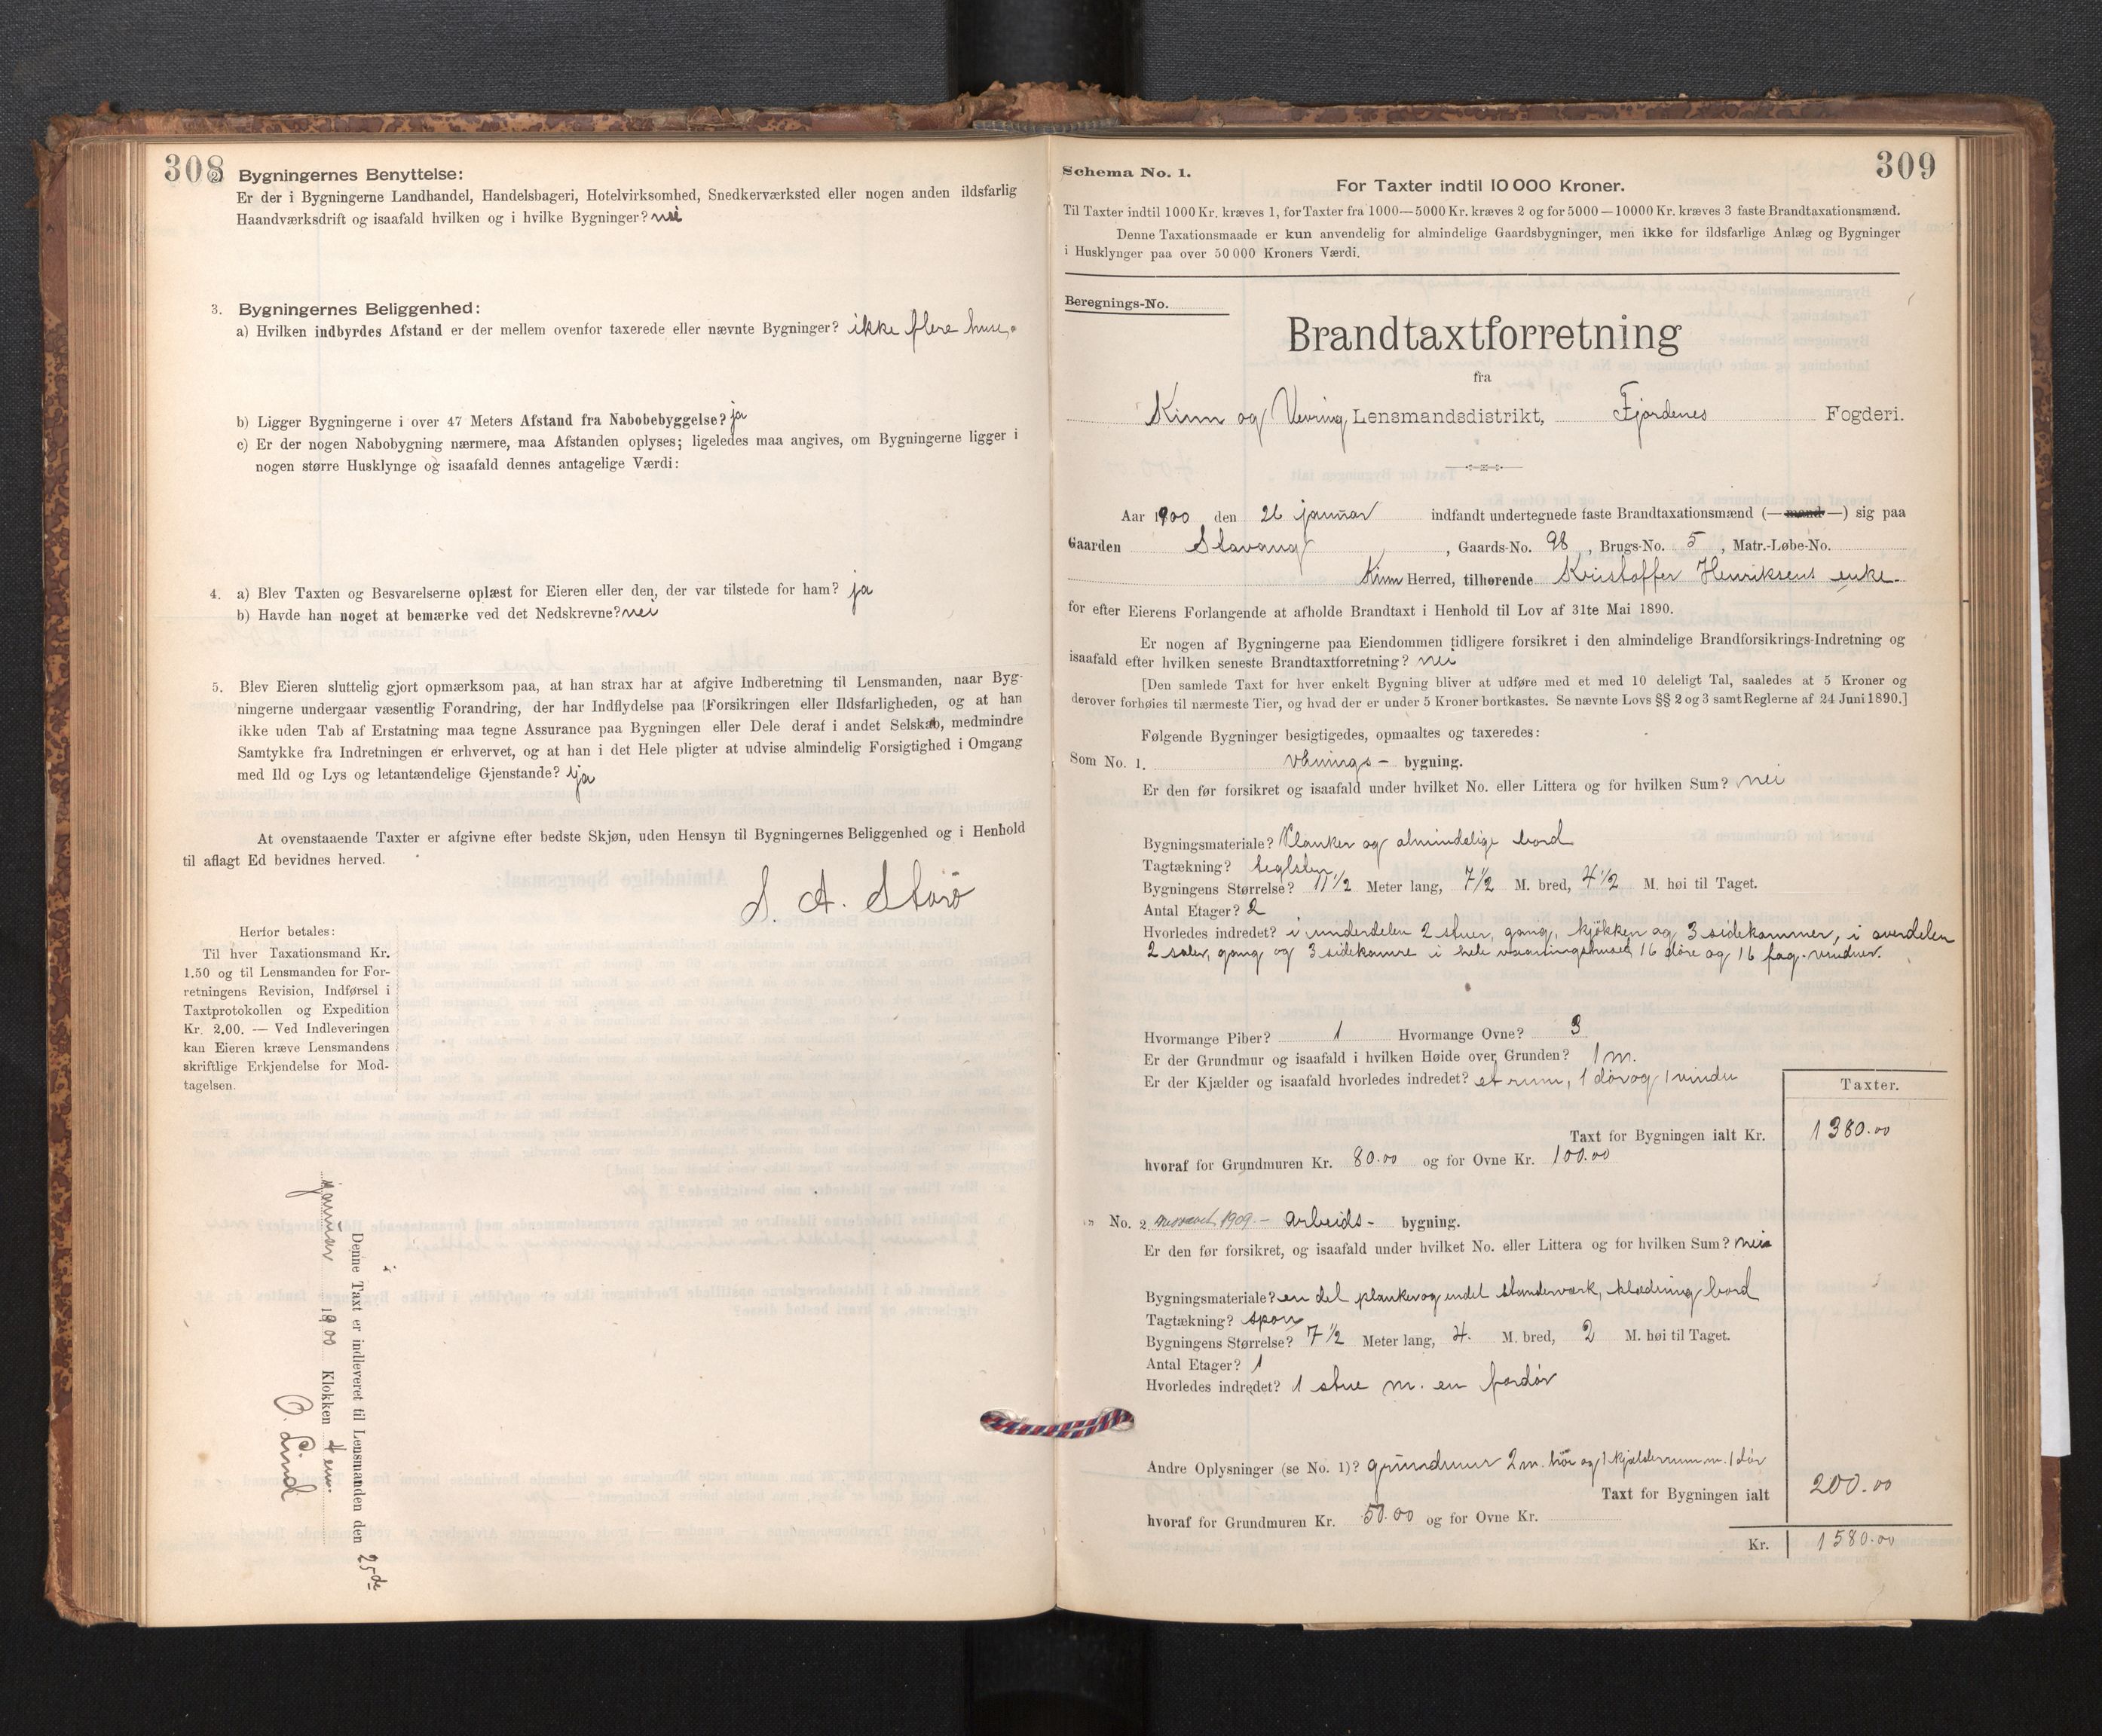 308
2. Bygningernes Benyttelse:
Er der i Bygningerne Landhandel, Handelsbageri, Hotelvirksomhed, Snedkerværksted eller nogen anden ildsfarlig
Haandværksdrift og isaafald hvilken og i hvilke Bygninger? nei
3. Bygningernes Beliggenhed:
a) Hvilken indbyrdes Afstand er der mellem ovenfor taxerede eller nævnte Bygninger? ikke flere huse.
b) Ligger Bygningerne i over 47 Meters Afstand fra Nabobebyggelse? ja
c) Er der nogen Nabobygning nærmere, maa Afstanden oplyses; ligeledes maa angives, om Bygningerne ligger i
nogen større Husklynge og isaafald dennes antagelige Værdi:
4. a) Blev Taxten og Besvarelserne oplæst for Eieren eller den, der var tilstede for ham? ja
b) Havde han noget at bemærke ved det Nedskrevne? nei
5. Blev Eieren sluttelig gjort opmærksom paa, at han strax har at afgive Indberetning til Lensmanden, naar Byg-
ningerne undergaar væsentlig Forandring, der har Indflydelse paa Forsikringen eller Ildsfarligheden, og at han
ikke uden Tab af Erstatning maa tegne Assurance paa Bygningen eller Dele deraf i andet Selskab, medmindre
Samtykke fra Indretningen er erhvervet, og at han i det Hele pligter at udvise almindelig Forsigtighed i Omgang
med Ild og Lys og letantændelige Gjenstande? ja
At ovenstaaende Taxter er afgivne efter bedste Skjøn, uden Hensyn til Bygningernes Beliggenhed og i Henhold
til aflagt Ed bevidnes herved.
S. A. Starö
Herfor betales:
Til hver Taxationsmand Kr.
1.50 og til Lensmanden for For-
retningens Revision, Indførsel i
Taxtprotokollen og Expedition
Kr. 2.00. — Ved Indleveringen
kan Eieren kræve Lensmandens
skriftlige Erkjendelse for Mod-
tagelsen.
Denne Taxt er indleveret til Lensmanden den 25de
januar 1900 Klokken 4 em.
O. Lind
309
Schema No. 1.
For Taxter indtil 10 000 Kroner.
Til Taxter indtil 1000 Kr. kræves 1, for Taxter fra 1000—5000 Kr. kræves 2 og for 5000—10000 Kr. kræves 3 faste Brandtaxationsmænd.
Denne Taxationsmaade er kun anvendelig for almindelige Gaardsbygninger, men ikke for ildsfarlige Anlæg og Bygninger
i Husklynger paa over 50 000 Kroners Værdi.
Beregnings-No.
Brandtaxtforretning
fra
Kinn og Vevring Lensmandsdistrikt, Fjordenes Fogderi.
Aar 1900 den 26 januar indfandt undertegnede faste Brandtaxationsmænd (—mand—) sig paa
Gaarden Stavang, Gaards-No. 98, Brugs-No. 5, Matr.-Løbe-No.
Kinn Herred, tilhørende Kristoffer Henriksens enke.
for efter Eierens Forlangende at afholde Brandtaxt i Henhold til Lov af 31te Mai 1890.
Er nogen af Bygningerne paa Eiendommen tidligere forsikret i den almindelige Brandforsikrings-Indretning og
isaafald efter hvilken seneste Brandtaxtforretning? nei
[Den samlede Taxt for hver enkelt Bygning bliver at udføre med et med 10 deleligt Tal, saaledes at 5 Kroner og
derover forhøies til nærmeste Tier, og hvad der er under 5 Kroner bortkastes. Se nævnte Lovs §§ 2 og 3 samt Reglerne af 24 Juni 1890.]
Følgende Bygninger besigtigedes, opmaaltes og taxeredes:
Som No. 1. vånings- bygning.
Er den før forsikret og isaafald under hvilket No. eller Littera og for hvilken Sum? nei
Bygningsmateriale? Planker og almindelige bord
Tagtækning? teglsten
Bygningens Størrelse? 11 1/2 Meter lang, 7 1/2 M. bred, 4 1/2 M. høi til Taget.
Antal Etager? 2
Hvorledes indredet? i underdelen 2 stuer, gang, kjökken og 3 sidekammer, i overdelen
2 saler, gang og 3 sidekamre i hele vaaningshuset 16 döre og 16 fag. vinduer.
Hvormange Piber? 1 Hvormange Ovne? 3
Er der Grundmur og isaafald i hvilken Høide over Grunden? 1 m.
Er der Kjælder og isaafald hvorledes indredet? et rum, 1 dör og 1 vindu
Taxter.
Taxt for Bygningen ialt Kr. 1380.00
hvoraf for Grundmuren Kr. 80.00 og for Ovne Kr. 100.00
" No. 2. 1909 - arbeids- bygning.
Er den før forsikret, og isaafald under hvilket No. eller Littera og for hvilken Sum? nei
Bygningsmateriale? en del planker og endel standerværk, klædning bord
Tagtækning? spon
Bygningens Størrelse? 7 1/2 Meter lang, 4. M. bred, 2 M. høi til Taget.
Antal Etager? 1
Hvorledes indredet? 1 stue m. en fordör
Andre Oplysninger (se No. 1)? grundmur 2 m. höi og 1 kjælderrum m. 1 dör
Taxt for Bygningen ialt 200.00
hvoraf for Grundmuren Kr. 50.00 og for Ovne Kr.
Kr. 1580.00